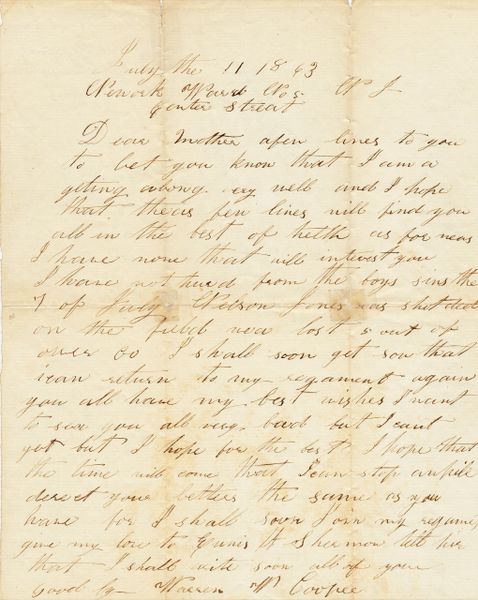 July the 11 1863
Newark Ward No 2 N J
Center Street
Dear Mother a fen lines to you
to let you know that I am a
geting along very well and I hope
that theas fen lines will find you
all in the best of helth as for news
I have none that will interest you
I have not hurd from the boys sins the
7 of July Nelson Jones was shot ded
on the feeld we lost out of
over I shall soon get so that
ican return to my regament again
you all have my best wishes I want
to see you all very bad but I cant
yet but I hope for the best I hope that
the time will come that I can stop
derect your letters the same as you
have for I shall soon Join my regament
give my love to tell hir
that I shall write soon all of you
Good by Warren W Cooper